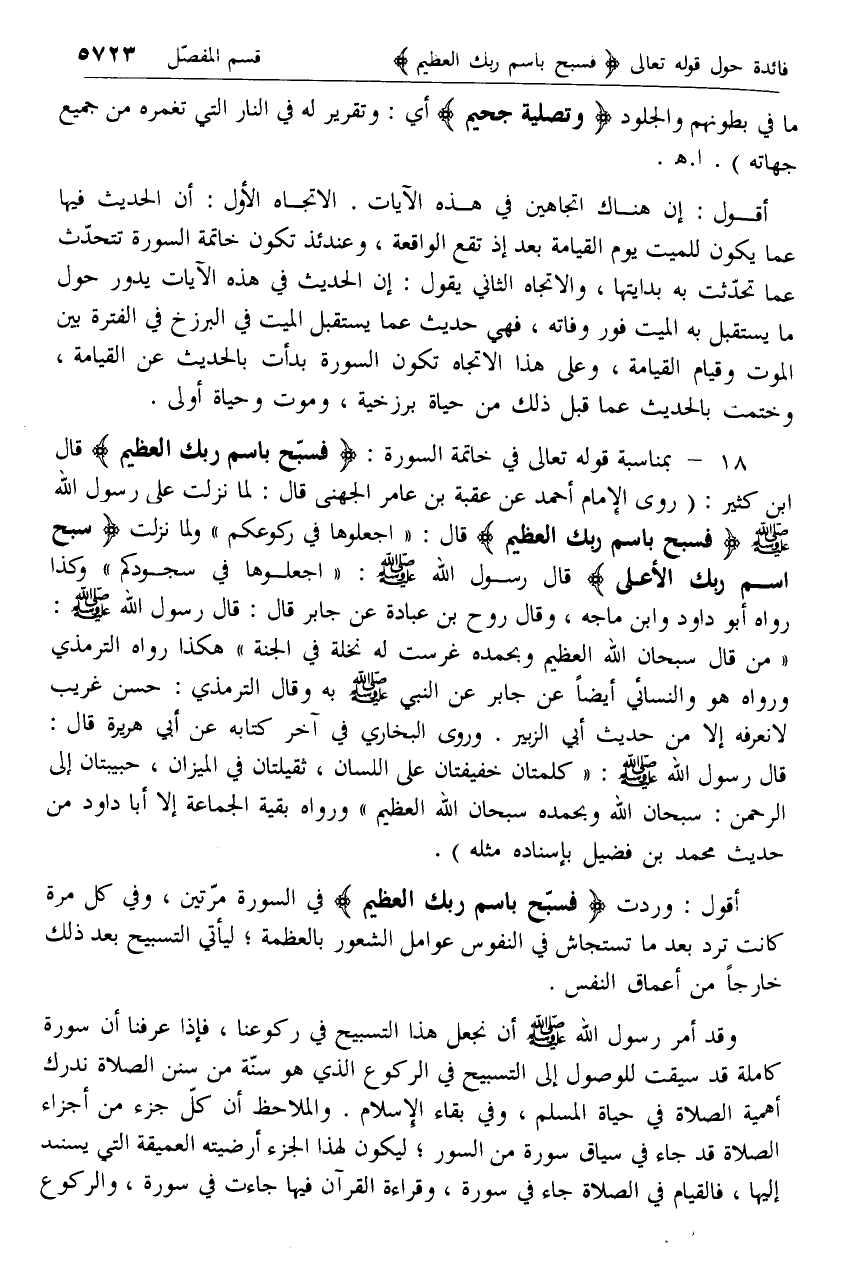 فائدة حول قوله تعالى ﴿ فسبح باسم ربك العظيم ﴾ قسم المفصّل ٥٧٢٣
ما في بطونهم والجلود ﴿ وتصلية جحيم ﴾ أي : وتقرير له في النار التي تغمره من جميع
جهاته ) . ا.هـ .
أقــول : إن هنــاك اتجاهين في هــذه الآيات . الاتجــاه الأول : أن الحديث فيها
عما يكون للميت يوم القيامة بعد إذ تقع الواقعة ، وعندئذ تكون خاتمة السورة تتحدّث
عما تحدّثت به بدايتها ، والاتجاه الثاني يقول : إن الحديث في هذه الآيات يدور حول
ما يستقبل به الميت فور وفاته ، فهي حديث عما يستقبل الميت في البرزخ في الفترة بين
الموت وقيام القيامة ، وعلى هذا الاتجاه تكون السورة بدأت بالحديث عن القيامة ،
وختمت بالحديث عما قبل ذلك من حياة برزخية ، وموت وحياة أولى .
١٨ – بمناسبة قوله تعالى في خاتمة السورة : ﴿ فسبّح باسم ربك العظيم ﴾ قال
ابن كثير : ( روى الإمام أحمد عن عقبة بن عامر الجهنى قال : لما نزلت على رسول الله
ﷺ ﴿ فسبح باسم ربك العظيم ﴾ قال : « اجعلوها في ركوعكم » ولما نزلت ﴿ سبح
اســم ربك الأعــلى ﴾ قال رســول الله ﷺ : « اجعلــوها في سجــودكم » وكذا
رواه أبو داود وابن ماجه ، وقال روح بن عبادة عن جابر قال : قال رسول الله ﷺ :
« من قال سبحان الله العظيم وبحمده غرست له نخلة في الجنة » هكذا رواه الترمذي
ورواه هو والنسائي أيضاً عن جابر عن النبي ﷺ به وقال الترمذي : حسن غريب
لانعرفه إلا من حديث أبي الزبير . وروى البخاري في آخر كتابه عن أبي هريرة قال :
قال رسول الله ﷺ : « كلمتان خفيفتان على اللسان ، ثقيلتان في الميزان ، حبيبتان إلى
الرحمن : سبحان الله وبحمده سبحان الله العظيم » ورواه بقية الجماعة إلا أبا داود من
حديث محمد بن فضيل بإسناده مثله ) .
أقول : وردت ﴿ فسبّح باسم ربك العظيم ﴾ في السورة مرّتين ، وفي كل مرة
كانت ترد بعد ما تستجاش في النفوس عوامل الشعور بالعظمة ؛ ليأتي التسبيح بعد ذلك
خارجاً من أعماق النفس .
وقد أمر رسول الله ﷺ أن نجعل هذا التسبيح في ركوعنا ، فإذا عرفنا أن سورة
كاملة قد سيقت للوصول إلى التسبيح في الركوع الذي هو سنّة من سنن الصلاة ندرك
أهمية الصلاة في حياة المسلم ، وفي بقاء الإسلام . والملاحظ أن كلّ جزء من أجزاء
الصلاة قد جاء في سياق سورة من السور ؛ ليكون لهذا الجزء أرضيته العميقة التي يستند
إليها ، فالقيام في الصلاة جاء في سورة ، وقراءة القرآن فيها جاءت في سورة ، والركوع